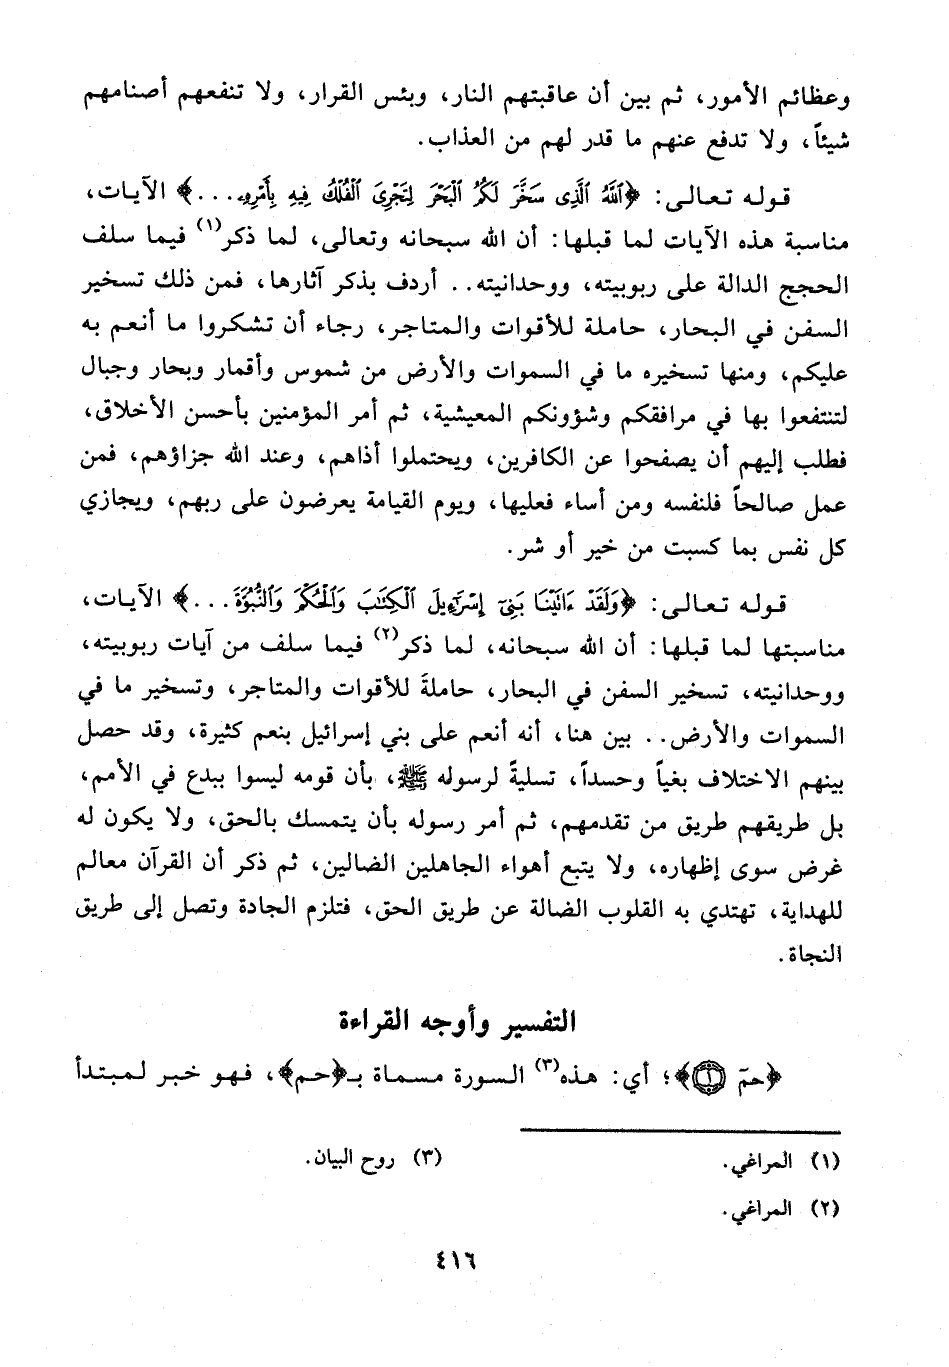 وعظائم الأمور، ثم بين أن عاقبتهم النار، وبئس القرار، ولا تنفعهم أصنامهم
شيئاً، ولا تدفع عنهم ما قدر لهم من العذاب.
قوله تعالى: ﴿ٱللَّهُ ٱلَّذِى سَخَّرَ لَكُمُ ٱلْبَحْرَ لِتَجْرِىَ ٱلْفُلْكُ فِيهِ بِأَمْرِهِۦ...﴾ الآيات،
مناسبة هذه الآيات لما قبلها: أن الله سبحانه وتعالى، لما ذكر(١) فيما سلف
الحجج الدالة على ربوبيته، ووحدانيته.. أردف بذكر آثارها، فمن ذلك تسخير
السفن في البحار، حاملة للأقوات والمتاجر، رجاء أن تشكروا ما أنعم به
عليكم، ومنها تسخيره ما في السموات والأرض من شموس وأقمار وبحار وجبال
لتنتفعوا بها في مرافقكم وشؤونكم المعيشية، ثم أمر المؤمنين بأحسن الأخلاق،
فطلب إليهم أن يصفحوا عن الكافرين، ويحتملوا أذاهم، وعند الله جزاؤهم، فمن
عمل صالحاً فلنفسه ومن أساء فعليها، ويوم القيامة يعرضون على ربهم، ويجازي
كل نفس بما كسبت من خير أو شر.
قوله تعالى: ﴿وَلَقَدْ ءَاتَيْنَا بَنِىٓ إِسْرَٰٓءِيلَ ٱلْكِتَٰبَ وَٱلْحُكْمَ وَٱلنُّبُوَّةَ...﴾ الآيات،
مناسبتها لما قبلها: أن الله سبحانه، لما ذكر(٢) فيما سلف من آيات ربوبيته،
ووحدانيته، تسخير السفن في البحار، حاملةً للأقوات والمتاجر، وتسخير ما في
السموات والأرض.. بين هنا، أنه أنعم على بني إسرائيل بنعم كثيرة، وقد حصل
بينهم الاختلاف بغياً وحسداً، تسليةً لرسوله ﷺ، بأن قومه ليسوا ببدع في الأمم،
بل طريقهم طريق من تقدمهم، ثم أمر رسوله بأن يتمسك بالحق، ولا يكون له
غرض سوى إظهاره، ولا يتبع أهواء الجاهلين الضالين، ثم ذكر أن القرآن معالم
للهداية، تهتدي به القلوب الضالة عن طريق الحق، فتلزم الجادة وتصل إلى طريق
النجاة.
التفسير وأوجه القراءة
﴿حمٓ ١﴾؛ أي: هذه(٣) السورة مسماة بـ﴿حم﴾، فهو خبر لمبتدأ
(١) المراغي. (٣) روح البيان.
(٢) المراغي.
٤١٦